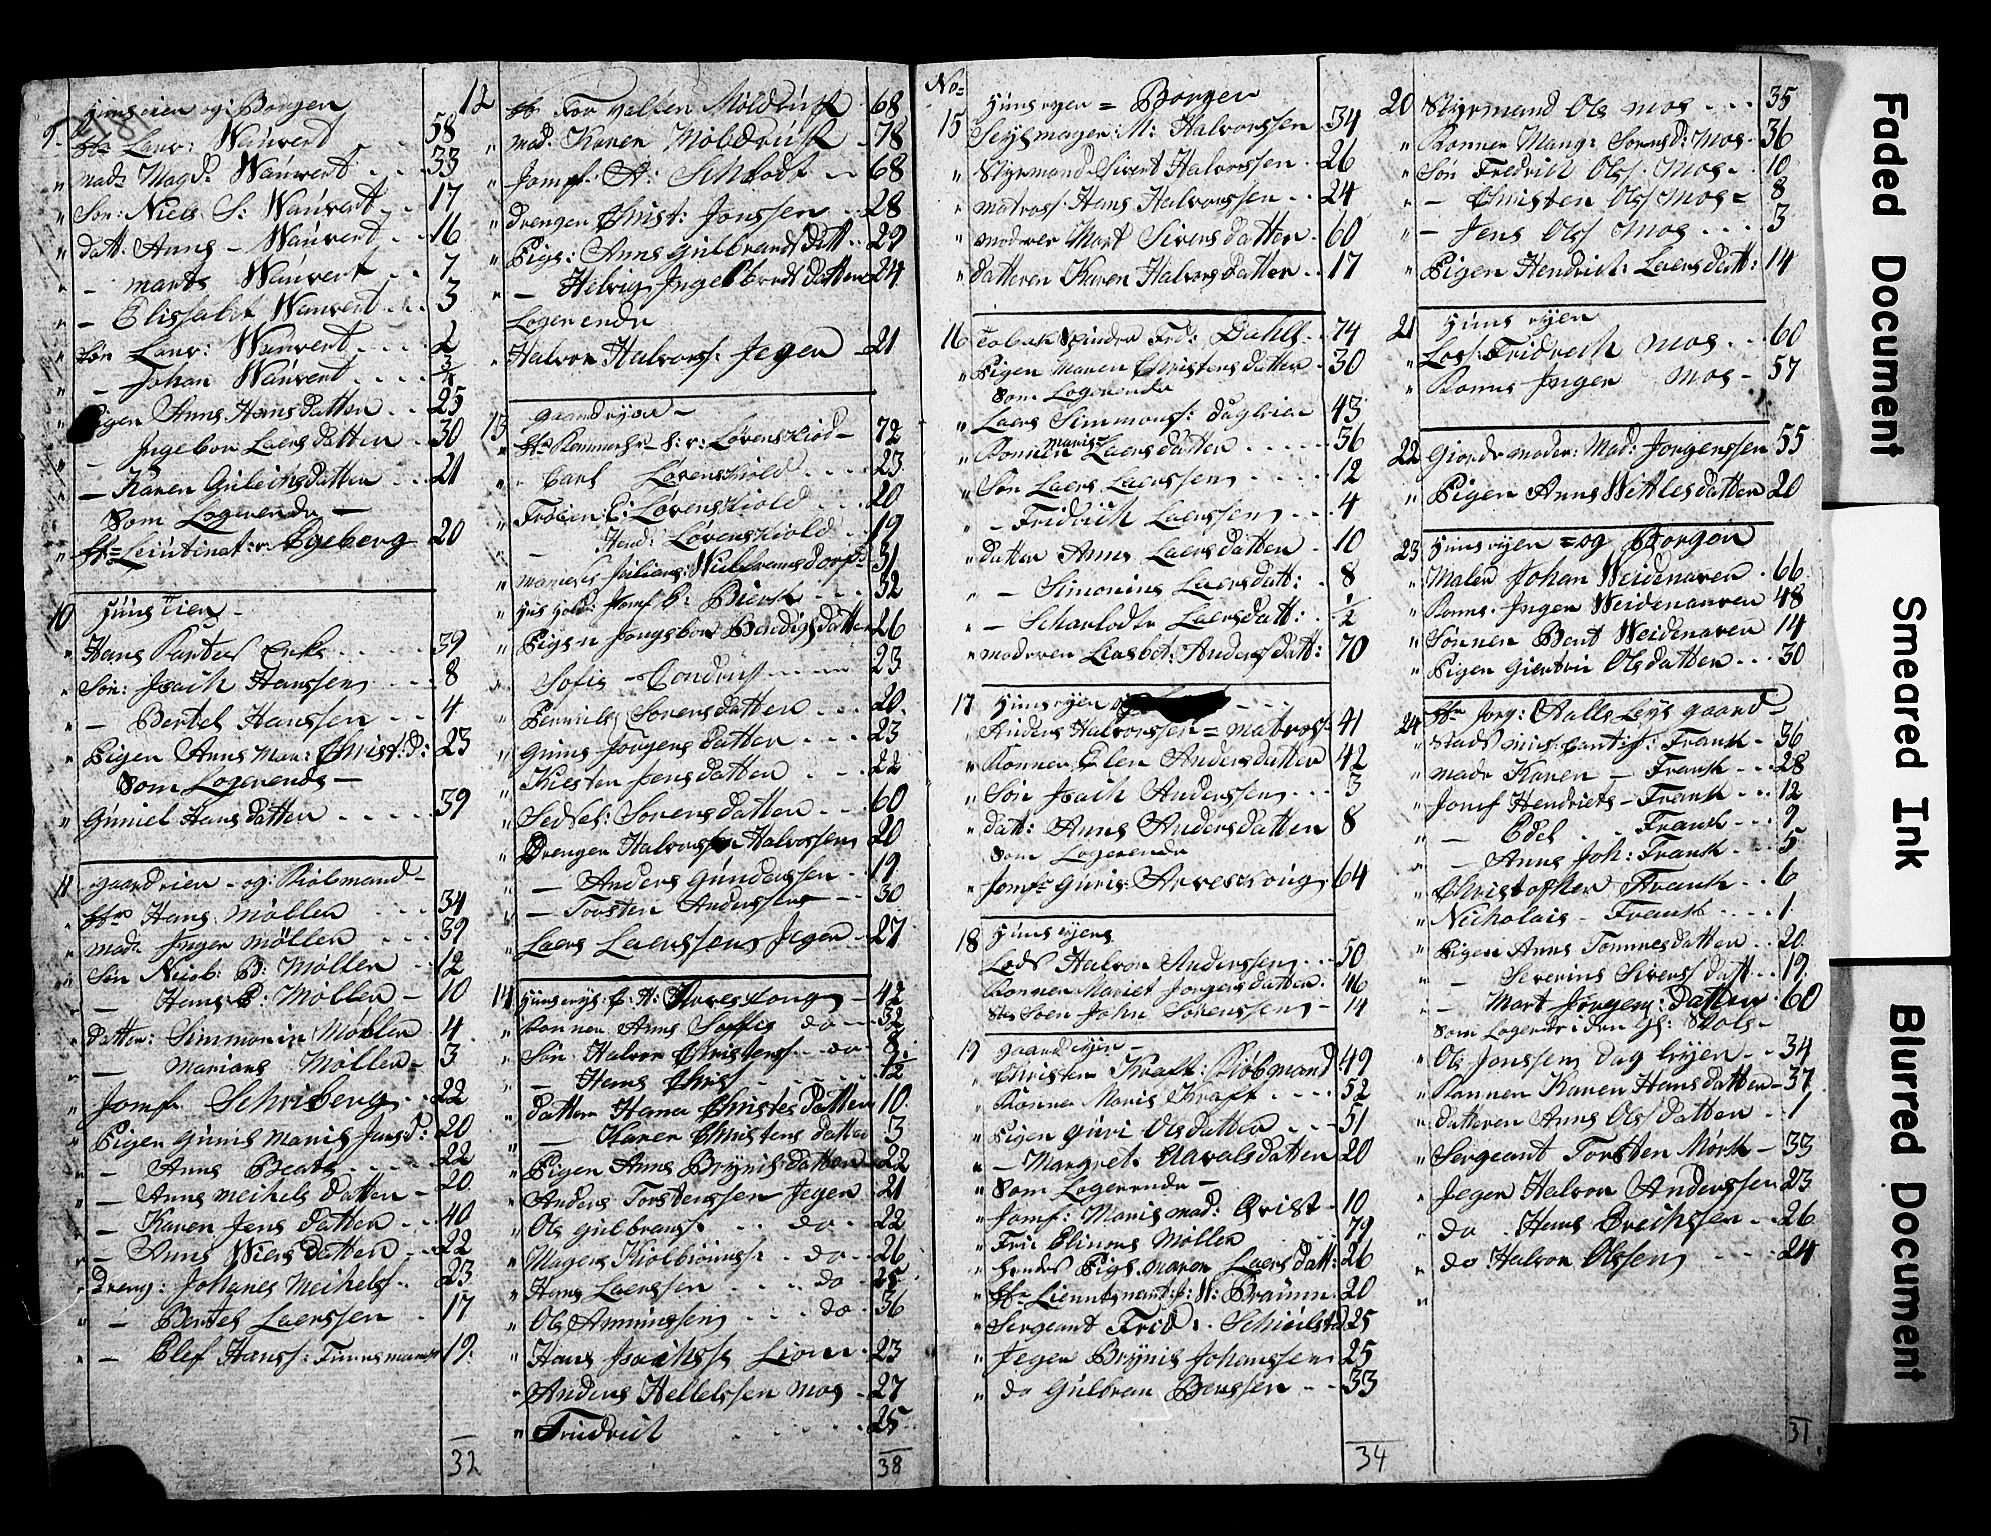 Huuseien og: Borgen
9. Hr Laur: Wauvert . . 58
" mad: Magd: Wauvert . . 33
" Søn: Niels S: Wauvert . . 17
" datt: Anne - Wauvert . . 16
" - marte Wauvert . . 7
" - Elissabet Wauvert . . 3
" Søn Laur: Wauvert . . . 2
" - Johan Wauvert . . . . 3/4
" Pigen Anne Hans datten . . 25
" - Ingebor Laers datten . . 30
" - Karen Guleichsdatten . . 21
Som Logerende -
" Hr Leutinat: v. Egeberg 20
10 Huus Eien -
" Hans Erks . . . . 39
" Søn: Isach Hanssen . . . 8
" - Bertel Hanssen . . . 4
" Pigen Anne Mar: Christ: d: 23
Som Logerende -
" Guniel Hans datten . . . . . 39
11 gaardeien - og: Kiøbmand -
" Hr Hans Møller . . . 34
" mad: Inger Møller . . . 39
" Søn Nicob: B: Møller . . 12
" - Hans B: Møller - 10
" datter: Simmonin Møller . 4
" - Mariane Møller - 3
" Jomf: Schriberg . . 22
" Pigen Guniel Marie Jensd: 20
" - Anne Beate . . . . 22
" - Anne Meihels datten - 20
" - Karen Jens datten . . . 40
" - Anne Niers datten . . . 22
" Dreng: Johanes Meihels . . 23
" - Bertel Laerssen . . 17
" - Elef Hanss: 19
32
12 Hr Valten Moldrup . 68
" mad: Karen Moldrup . 78
" Jomf: A: Schlodt . . 68
" drengen Christ: Jonssen . . 28
" Pige: Anne Gulbrands datt . . 29
" - Helvig Ingelbrect datten 24
Logerende
" Halvor Halvors: Jeger . 21
13 gaardeyer -
" Hr Kammerhr S: v: Løvenskiold - 72
" - Carl Løvenskiold . . . . 23
" Frøcien E: Løvenskiold . . . 20
" - Hend: Løvenskiold . . 19
" mamesel Juliane: Wilbramsdorf 51
" Huus hold: Jomf B: Bierk . . . 32
" Pigen Ingebor Bendigsdatten 26
" Sofie - Condrup . . . . 23
" Pernille Sorens datten . . . 20.
" Gunie Jorgens datten . . . 23
" Kiesten Jens datten . . . . 22
" Sedsel: Sorens datten . . . 60
" Drengen Halvor Halvorssen 20
" - Anders Gunderssen . . 19.
" - Torsten Anderssen - - 30
" Laers Laerssen Jeger . . 27
14 Huuseyr C: H: Arveskoug - 42
" Konen Anne Soffie do - 32
" Søn Halvor Christens . . do . . 8
" - Hans Chris . . . . . 2 1/2
" datter Hane Christes datten 10
" - Karen Christens datten 3
" Pigen Anne Brynils datten 22
" Anders Torstenssen Jeger 21
" Ole Gulbrans: . . do . . 22
" Magers Kiølbiørns: . . do . . 26
" Hans Laerssen . . . . do . 25
" Ole Amunssen . . . . do . 36
" Hans Isachss Lion . 23
" Anders Hellelssen mos . . 27
" Fridrich . . . . . . 25
38
No
Huuseyer = Borger
15 Seylmager: M: Halvorssen . 34
" Styrmand Sivert Halvorssen . 26
" matross: Hans Halvorssen . . 24
" moderer Mart Sivers datten . 60
" datteren Karen Halvors datten . 17
16 Tobak Spinder Frd: Dahll . 74
" Pigen Maren Christens datten . 30
Som Logerende
" Laers Simmons: dagleier 43
" Konnen Marie Laers datten . . . . 56
" Søn Laers Laerssen . . . . 12
" - Fridrich Laerssen . . . 4
" datter Anne Laers datten . 10
" - Simonine Laersdatt: . 8
" - Scharlodte Laersdatt: . 1/2
" moderen Liesbet: Anders datt: 70
17 Huuseyer
" Anders Halvorssen = matross . 41
" Konnen Elen Anders datter 42
" Søn Isach Anderssen . . . 3
" datt: Anne Anders datten 8
Som Logerende
" Jomf: Gurie: Arveskoug . 64
18 Huuseyere
" Lods Halvor Anderssen . . . 50
" Konnen Mariet Jorgens datten . 46
" Søen John Sorenssen - . 14
19 gaardeyer -
" Christen Kraft: Kiøbmand . 49
" Konnen Marie Kraft . . . . 52
" Pigen Guri Ols datter . . . 51
" - Margret: Aavalsdatten 20
Som Logerende -
" Jomf: Marie mad: Qvist . 10
" Frue Elinore Møller . . 79
" hendes Pige Maren Laers datt: 26
" Hr Lieutnant: J: H: Braunn . 20
" Sergeant Frid: . . 25
" Jeger Brynil Johanssen 25
" do Gulbran Benssen . . . 33
34
20 Styrmand Ole Mos . . . 35
" Konnen Marg: Sorens d: Mos . 36
" Søn Fredrich Ols: Mos . . 10
" - Christen Ols Mos = 8
" - Jens Ols Mos . . . . 3
" Pigen Hendrict: Laers datt: 14
21 Huus eyer
" Los: Fridrich Mos . . . 60
" Konne Inger Mos - 57
22 Giordemoder: Mad: Jorgenssen 55
" Pigen Anne Wetlesdatten 20
23 Huuseyer = og Borger
" Maler Johan Weidenaren . 66
" Konne Inger Weidenaren 48
" Sønnen Bent Weidenaren 14
" Pigen Giertrn Ols datten . . . 30
24 Hr Jorg: Aalls Leye gaard -
" Frank - 36
" made Karen - Frank - . . 28
" Jomf Hendriete - Frank . . . 12
" - Edel . . Frank . . . 9
" - Anne Joh: Frank . . . 5
" Christopher Frank . . 6
" Nicholais - Frank . . . . 1.
" Pigen Anne Tommesdatten . . 20.
" - Severine Sivers: datt . . 19.
" - Mart Jørgen: datten . 60
Som Logerde i den gl: Skole -
" Ole Jonssen dag leyer . . 34
" Konnen Karen Hansdatten - 37
" datteren Anne Ols datten . . 1
" Sergeant Torsten Mørk - 33
" Jeger Halvor Anderssen 23
" do Hans Ereichssen . . 26
" do Halvor Olssen . . . . 24
31
Faded Document
Smeared Ink
Blurred Document